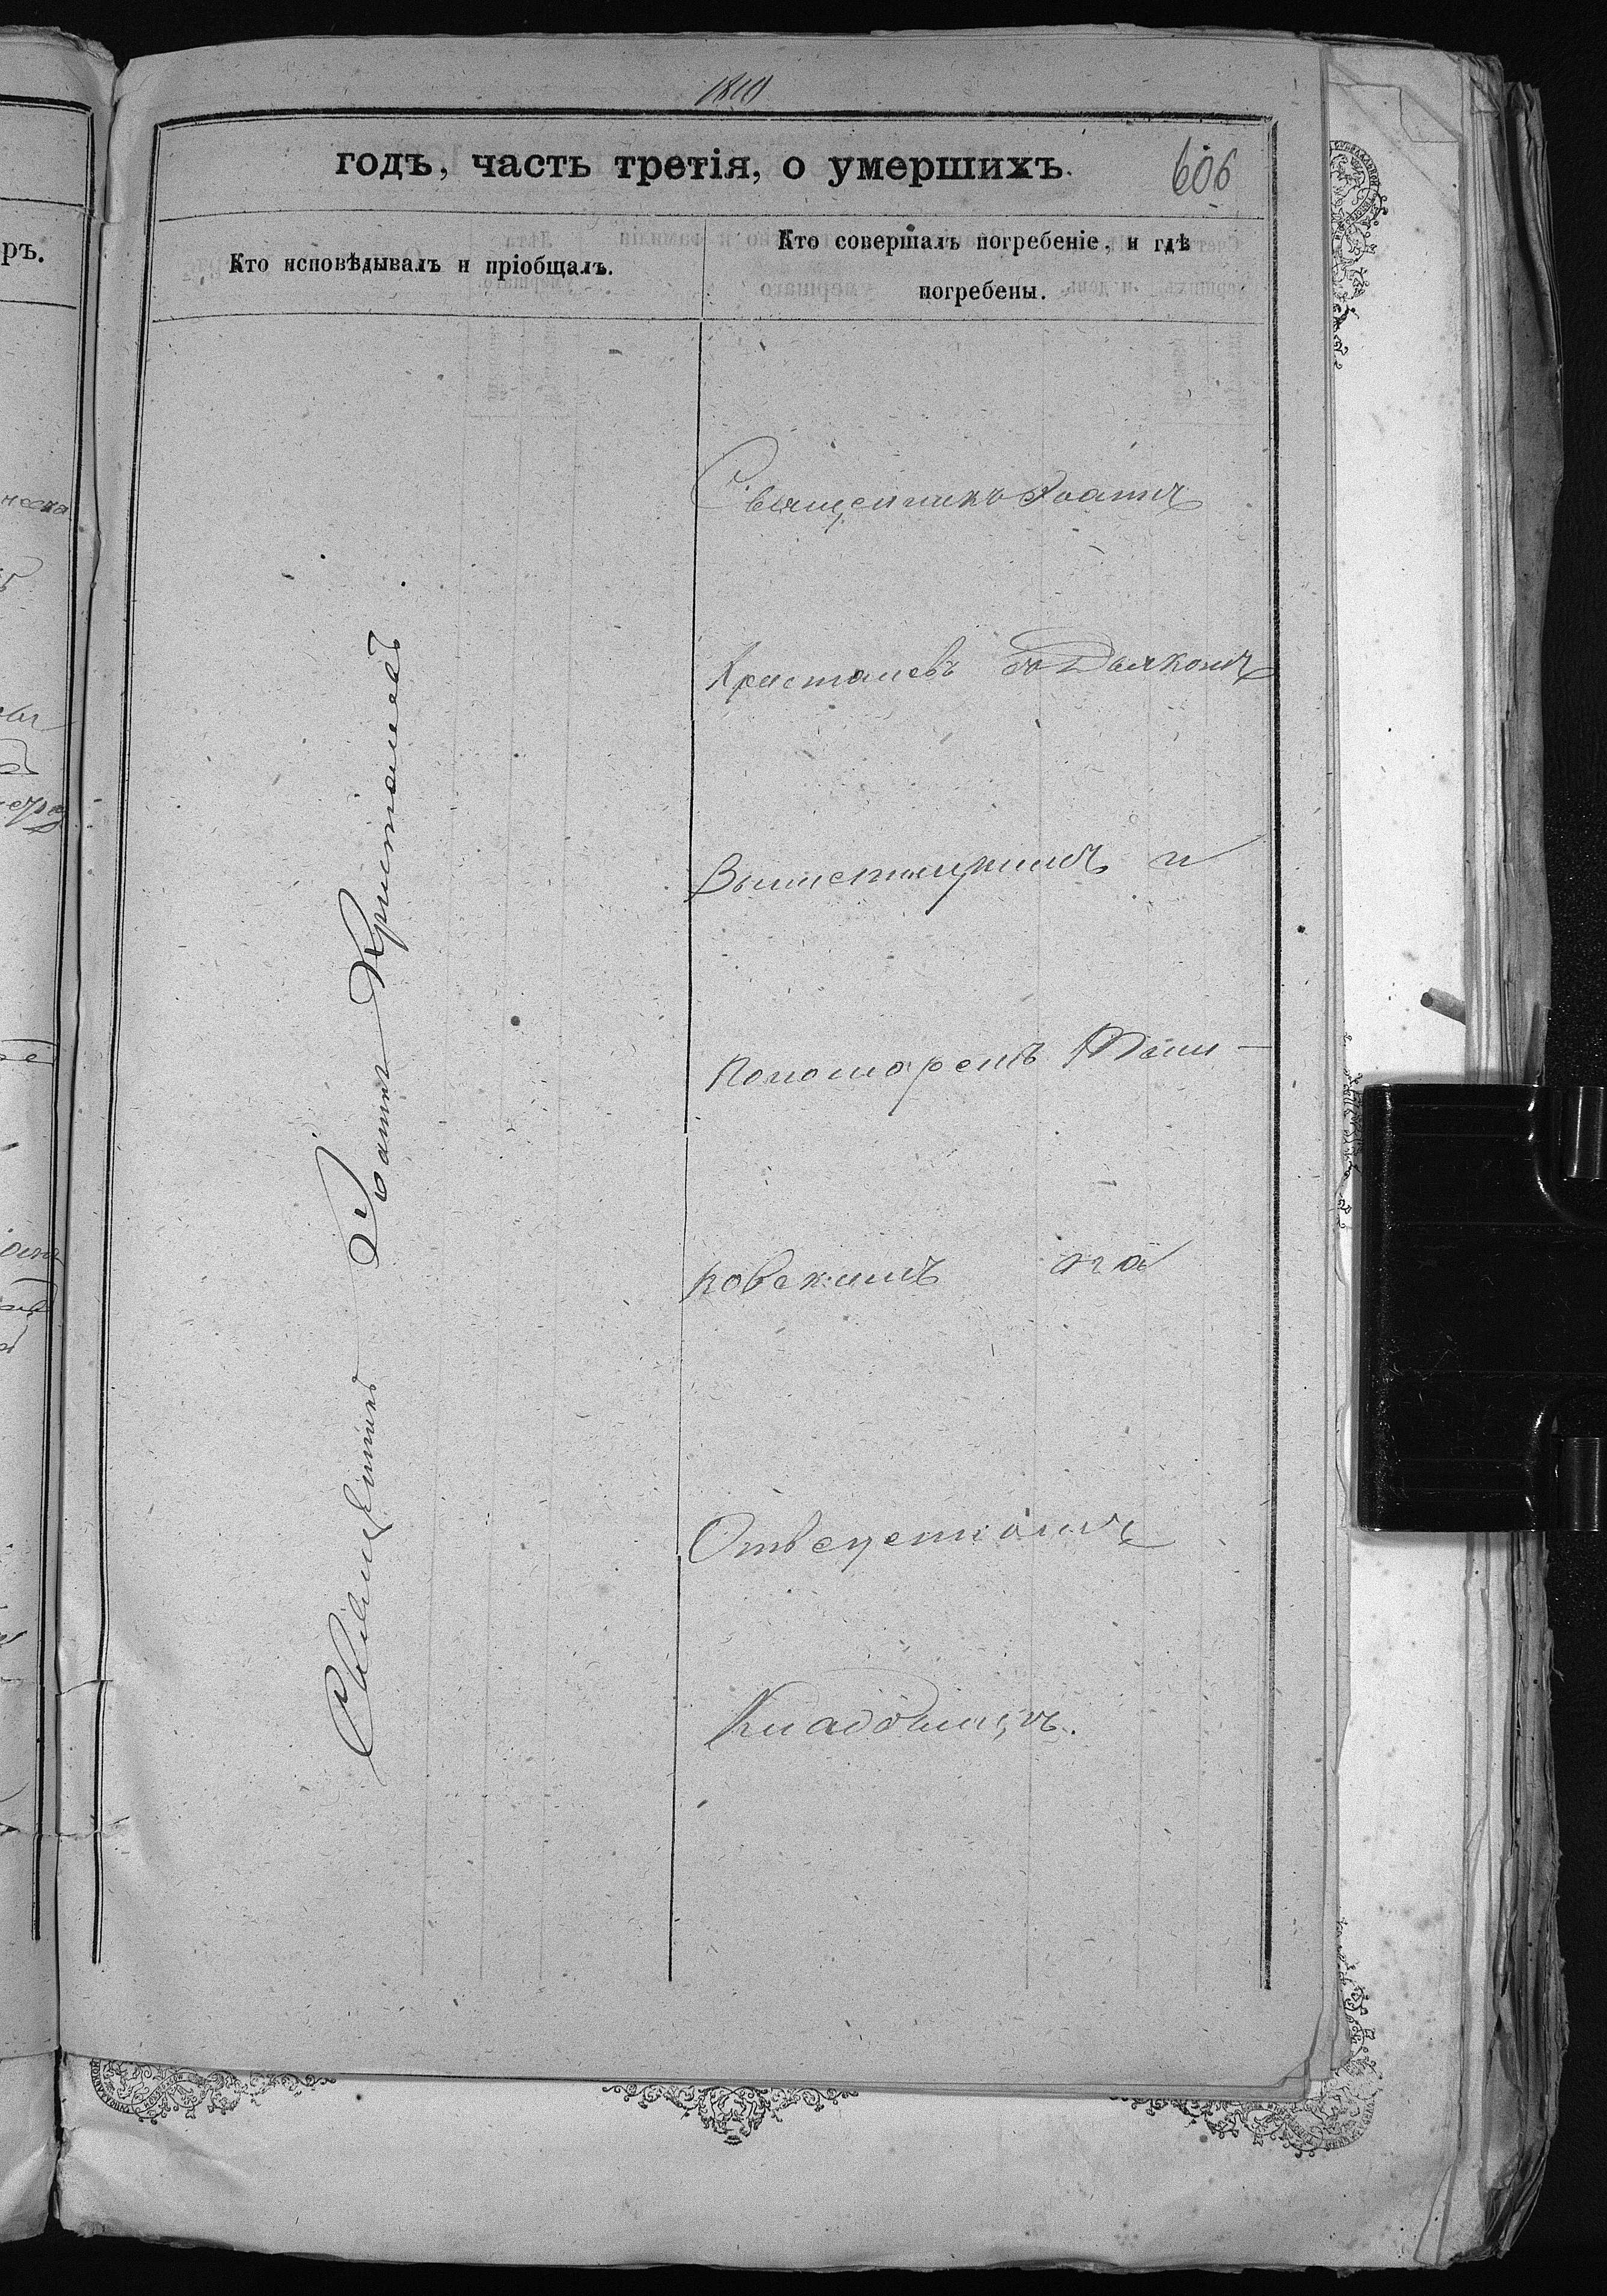 годъ, часть третія, о умершихъ.
606
Кто исповѣдывалъ и пріобщалъ.
Кто совершалъ погребеніе, и гдѣ
погребены.
Священникъ Іоаннъ Кристалевъ
Священникъ Іоаннъ
Кристалевъ съ Дьякомъ
и
пономаремъ
ковскимъ на
Отведенномъ
Кладбищѣ.